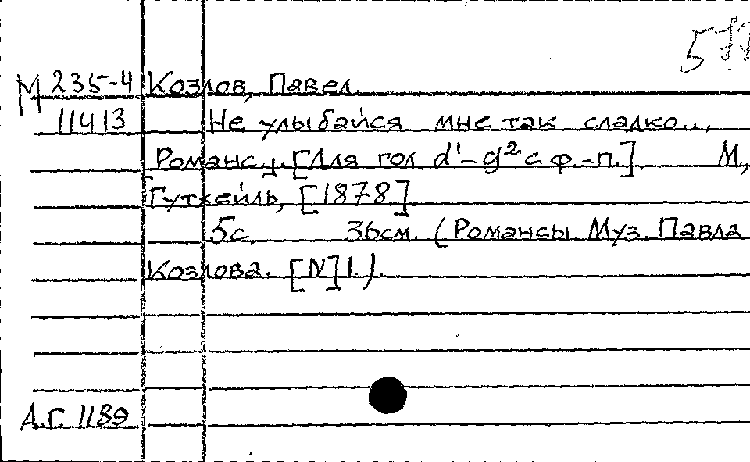 М 235-4 Козлов, Павел.
11413 Не улыбайся мне так сладко...,
Романс. [Для гол d¹-g² с ф.-п.] М,
Гутхейль, [1878]
5с. 36см. (Романсы Муз. Павла
Козлова. [N] 1.).
А.Г. 1189